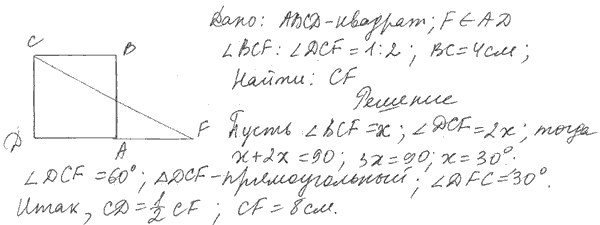 Дано: ABCD-квадрат; F ∈ AD
∠BCF : ∠DCF = 1:2 ; BC = 4 см ;
Найти: CF
Решение
Пусть ∠BCF = x ; ∠DCF = 2x ; тогда
x + 2x = 90 ; 3x = 90 ; x = 30°.
∠DCF = 60° ; △DCF - прямоугольный ; ∠DFC = 30°.
Итак, CD = 1/2 CF ; CF = 8 см.
C
B
D
A
F